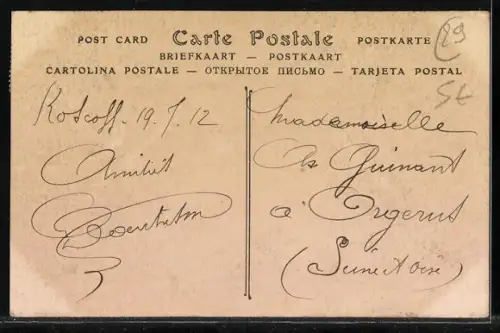 POST CARD Carte Postale POSTKARTE
BRIEFKAART — POSTKAART
CARTOLINA POSTALE — ОТКРЫТОЕ ПИСЬМО — TARJETA POSTAL
29
Roscoff. 19.7.12
Amitiés
Mademoiselle
Guinant
à Orgerus
(Seine et Oise)